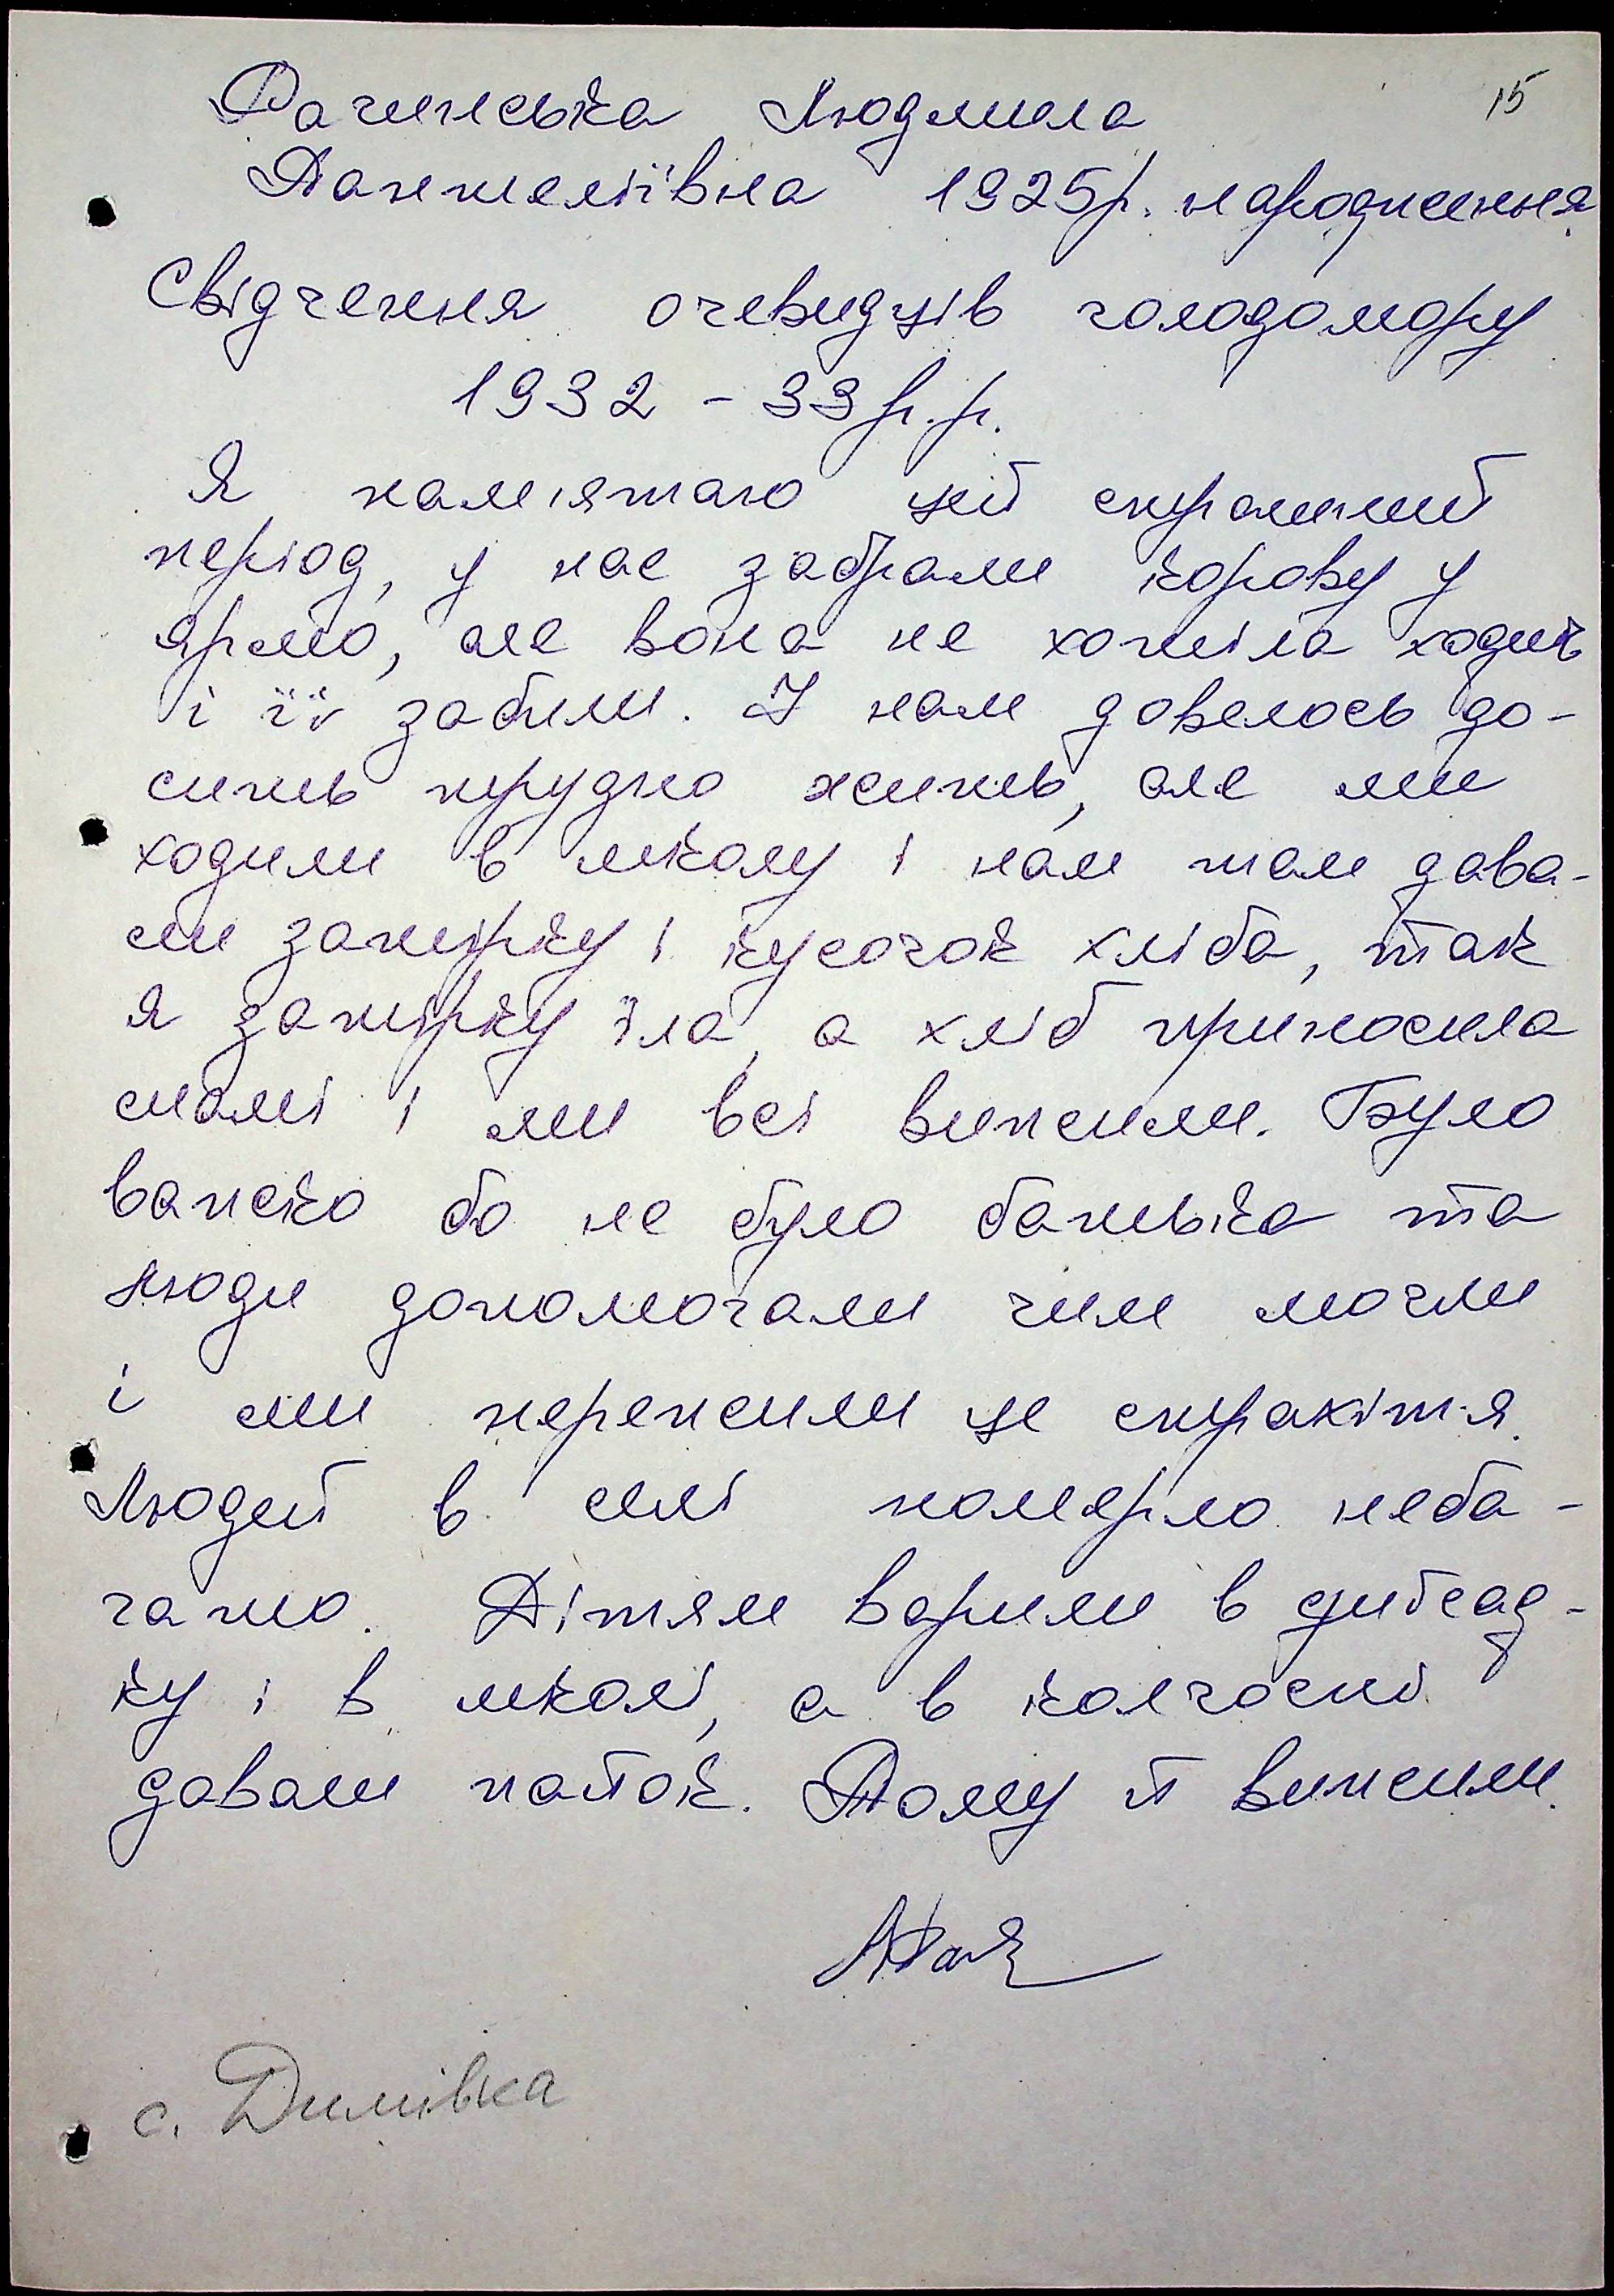 15
Рачинська Людмила
Пантеліївна 1925р. народження.
Свідчення очевидців голодомору
1932 - 33 р.р.
Я памʼятаю цей страшний
період, у нас забрали корову у
ярмо, але вона не хотіла ходить
і її забили. І нам довелось до-
сить трудно жить, але ми
ходили в школу і нам там дава-
ли затірку і кусочок хліба, так
я затірку їла, а хліб приносила
мамі і ми всі вижили. Було
важко бо не було батька та
люди допомогали чим могли
і ми пережили це страхіття.
Людей в селі померло неба-
гато. Дітям варили в дитсад-
ку і в школі, а в колгоспі
давали пайок. Тому й вижили.
с. Димівка